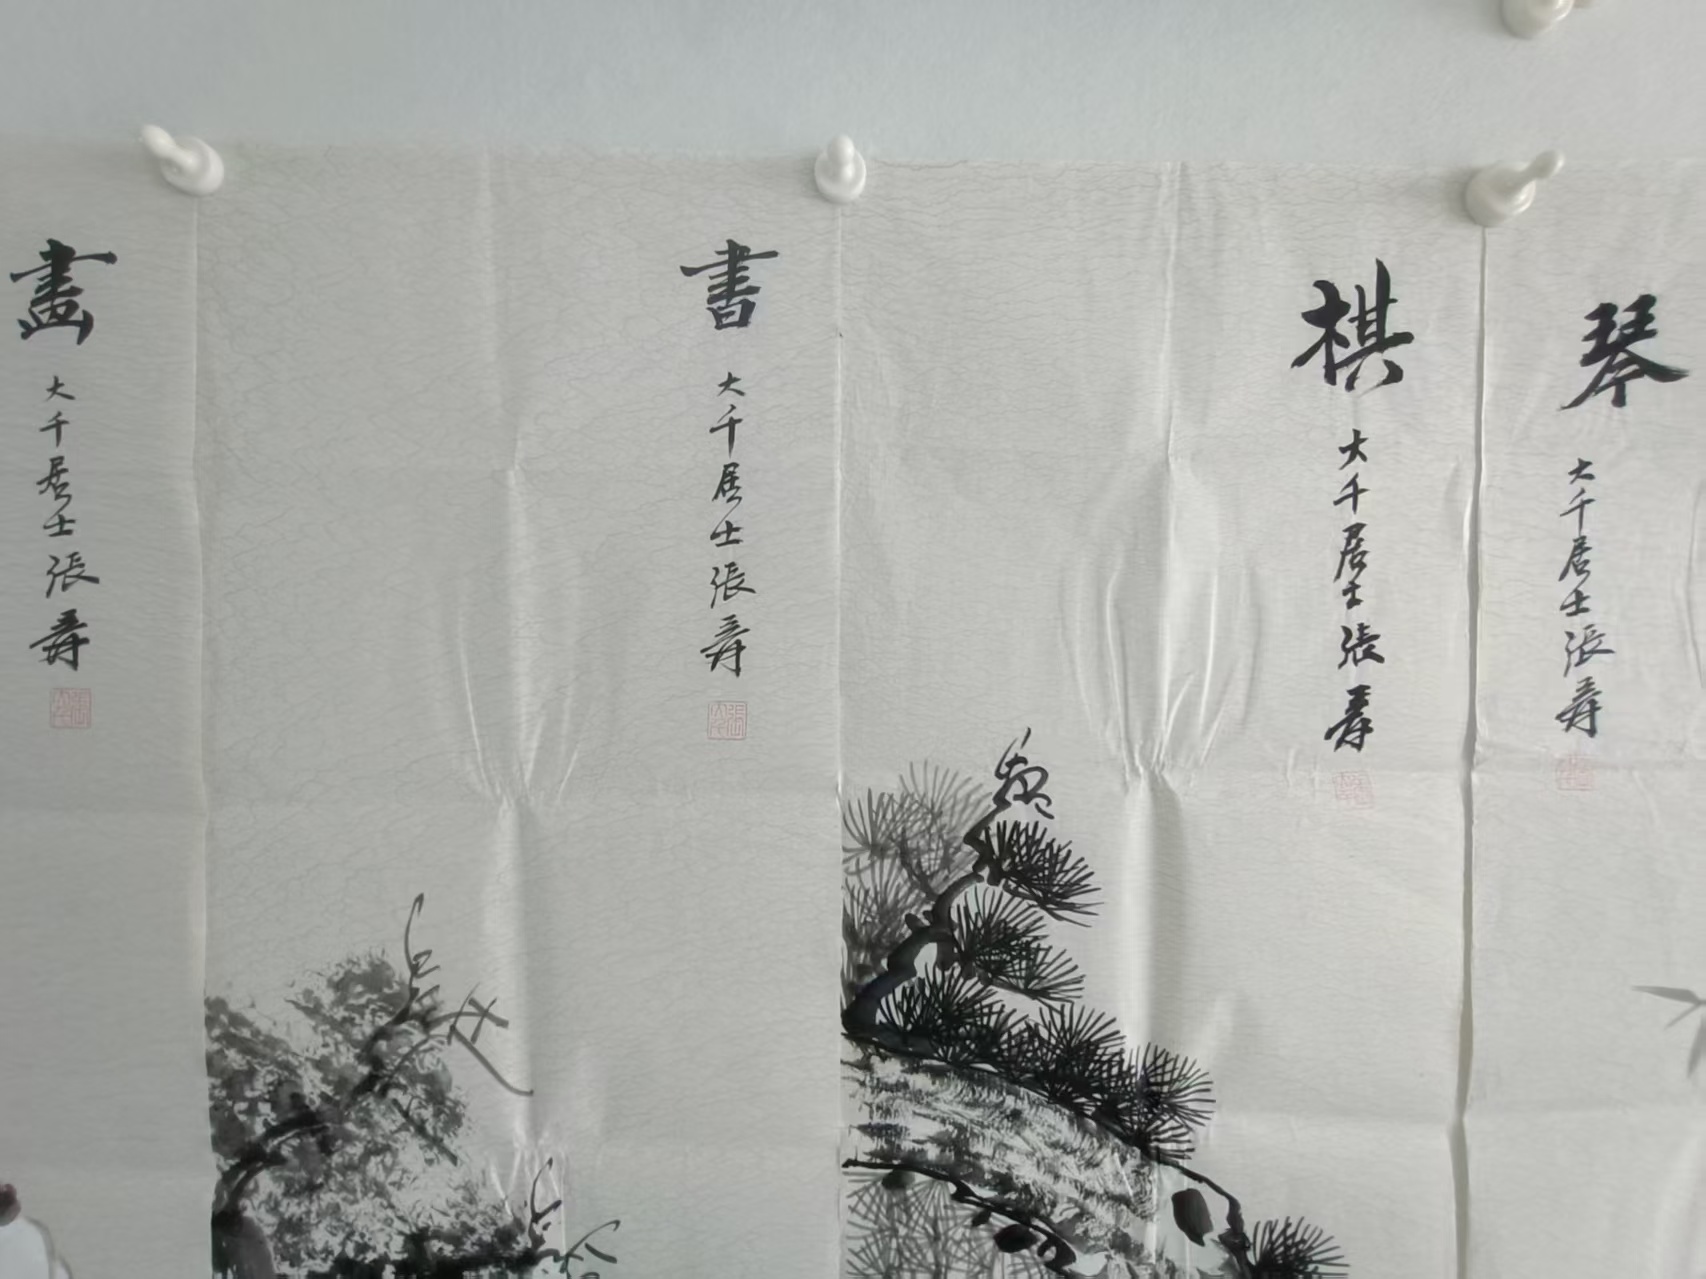 琴
大千居士張壽
棋
大千居士張壽
書
大千居士張壽
畫
大千居士張壽